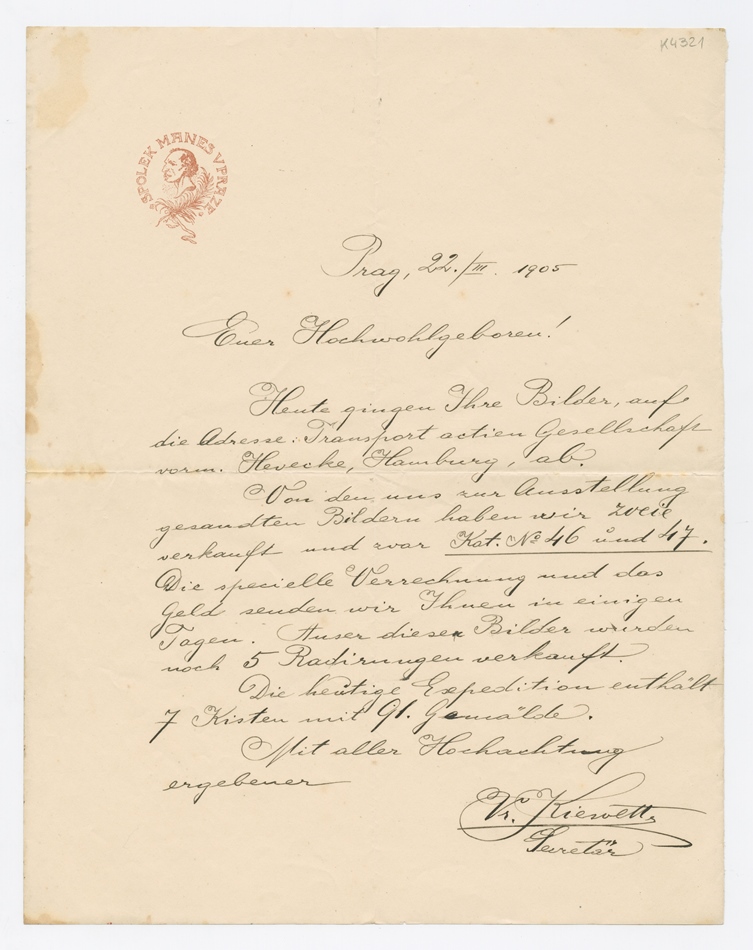 K4321
SPOLEK MANES V PRAZE
Prag, 22./III. 1905
Euer Hochwohlgeboren!
Heute gingen Ihre Bilder, auf
die Adresse: Transport actien Gesellschaft
vorm. Hevecke, Hamburg, ab.
Von den uns zur Ausstellung
gesandten Bildern haben wir zweie
verkauft und zwar Kat. No 46 und 47.
Die specielle Verrechnung und das
Geld senden wir Ihnen in einigen
Tagen. Auser dieser Bilder wurden
noch 5 Radirungen verkauft.
Die heutige Expedition enthält
7 Kisten mit 91. Gemälde.
Mit aller Hochachtung
ergebener
Secretär